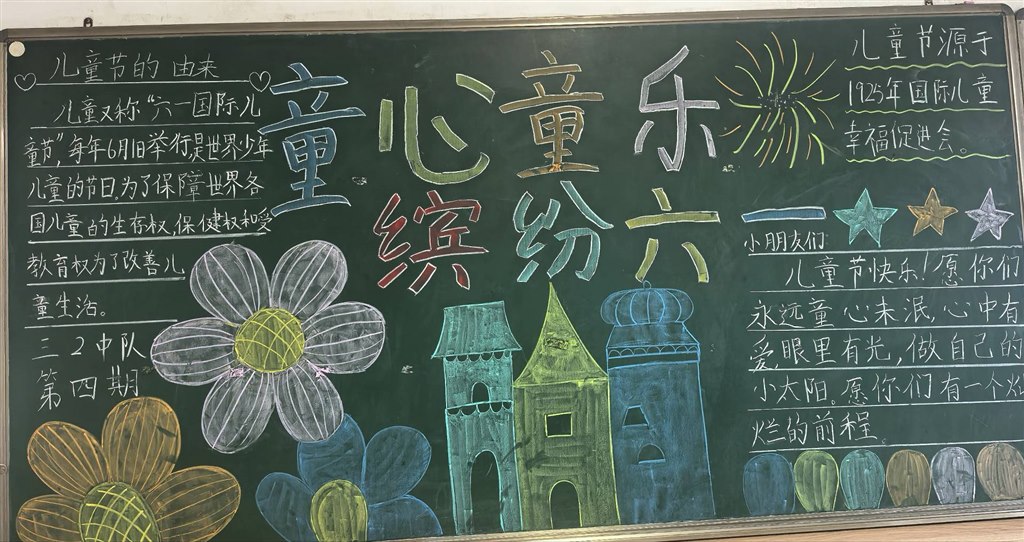 儿童节的由来
儿童又称“六一国际儿
童节”,每年6月1日举行是世界少年
儿童的节日,为了保障世界各
国儿童的生存权,保健权和受
教育权为了改善儿
童生活。
三2中队
第四期
童心童乐
缤纷六一
儿童节源于
1925年国际儿童
幸福促进会。
小朋友们
儿童节快乐!愿你们
永远童心未泯,心中有
爱,眼里有光,做自己的
小太阳。愿你们有一个灿
烂的前程。